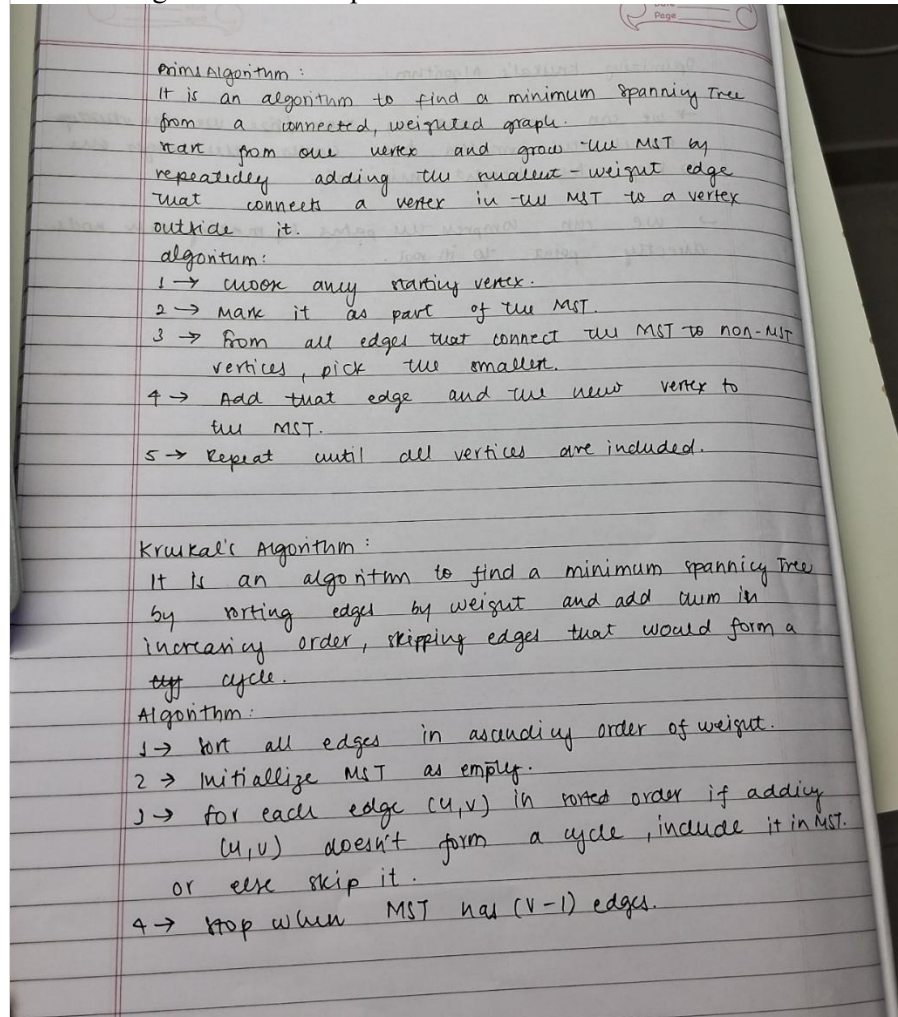 Page
Prims Algorithm :
It is an algorithm to find a minimum Spanning Tree
from a connected, weighted graph.
Start from one vertex and grow the MST by
repeatedly adding the smallest - weight edge
that connects a vertex in the MST to a vertex
outside it.
algorithm:
1 → choose any starting vertex.
2 → Mark it as part of the MST.
3 → From all edges that connect the MST to non-MST
vertices, pick the smallest.
4 → Add that edge and the new vertex to
the MST.
5 → Repeat until all vertices are included.
Kruskal's Algorithm :
It is an algorithm to find a minimum spanning Tree
by sorting edges by weight and add them in
increasing order, skipping edges that would form a
cycle.
Algorithm:
1 → Sort all edges in ascending order of weight.
2 → Initiallize MST as empty.
3 → for each edge (u,v) in sorted order if adding
(u,v) doesn't form a cycle, include it in MST.
or else skip it.
4 → Stop when MST has (V-1) edges.